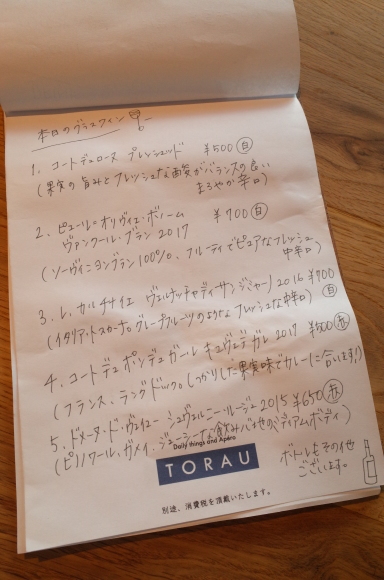 本日のグラスワイン
1. コートデュローヌ プレッシェッド ¥500 白
(果実の旨みとフレッシュな酸がバランスの良い
まろやか辛口)
2. ピュール・オリヴィエ・ボノーム ¥700 白
ヴァンクール・ブラン 2017
(ソーヴィニヨンブラン100%、フルーティでピュアなフレッシュ
中辛口)
3. レ カルチナイエ ヴェルナッチャディサンジミニャーノ 2016 ¥700
(イタリア、トスカーナ。グレープフルーツのようなフレッシュな中辛口) 白
4. コートデュ ポンデュガール キュヴェデガレ 2017 ¥500 赤
(フランス、ラングドック。しっかりした果実味でカレーに合います!)
5. ドメーヌ・ド・ヴェイユー シュヴェルニー・ルージュ 2015 ¥650 赤
(ピノノワール、ガメイ、ジューシーな飲み心地のミディアムボディ)
Daily things and Apéro
TORAU
ボトルもその他
ございます。
別途、消費税を頂戴いたします。